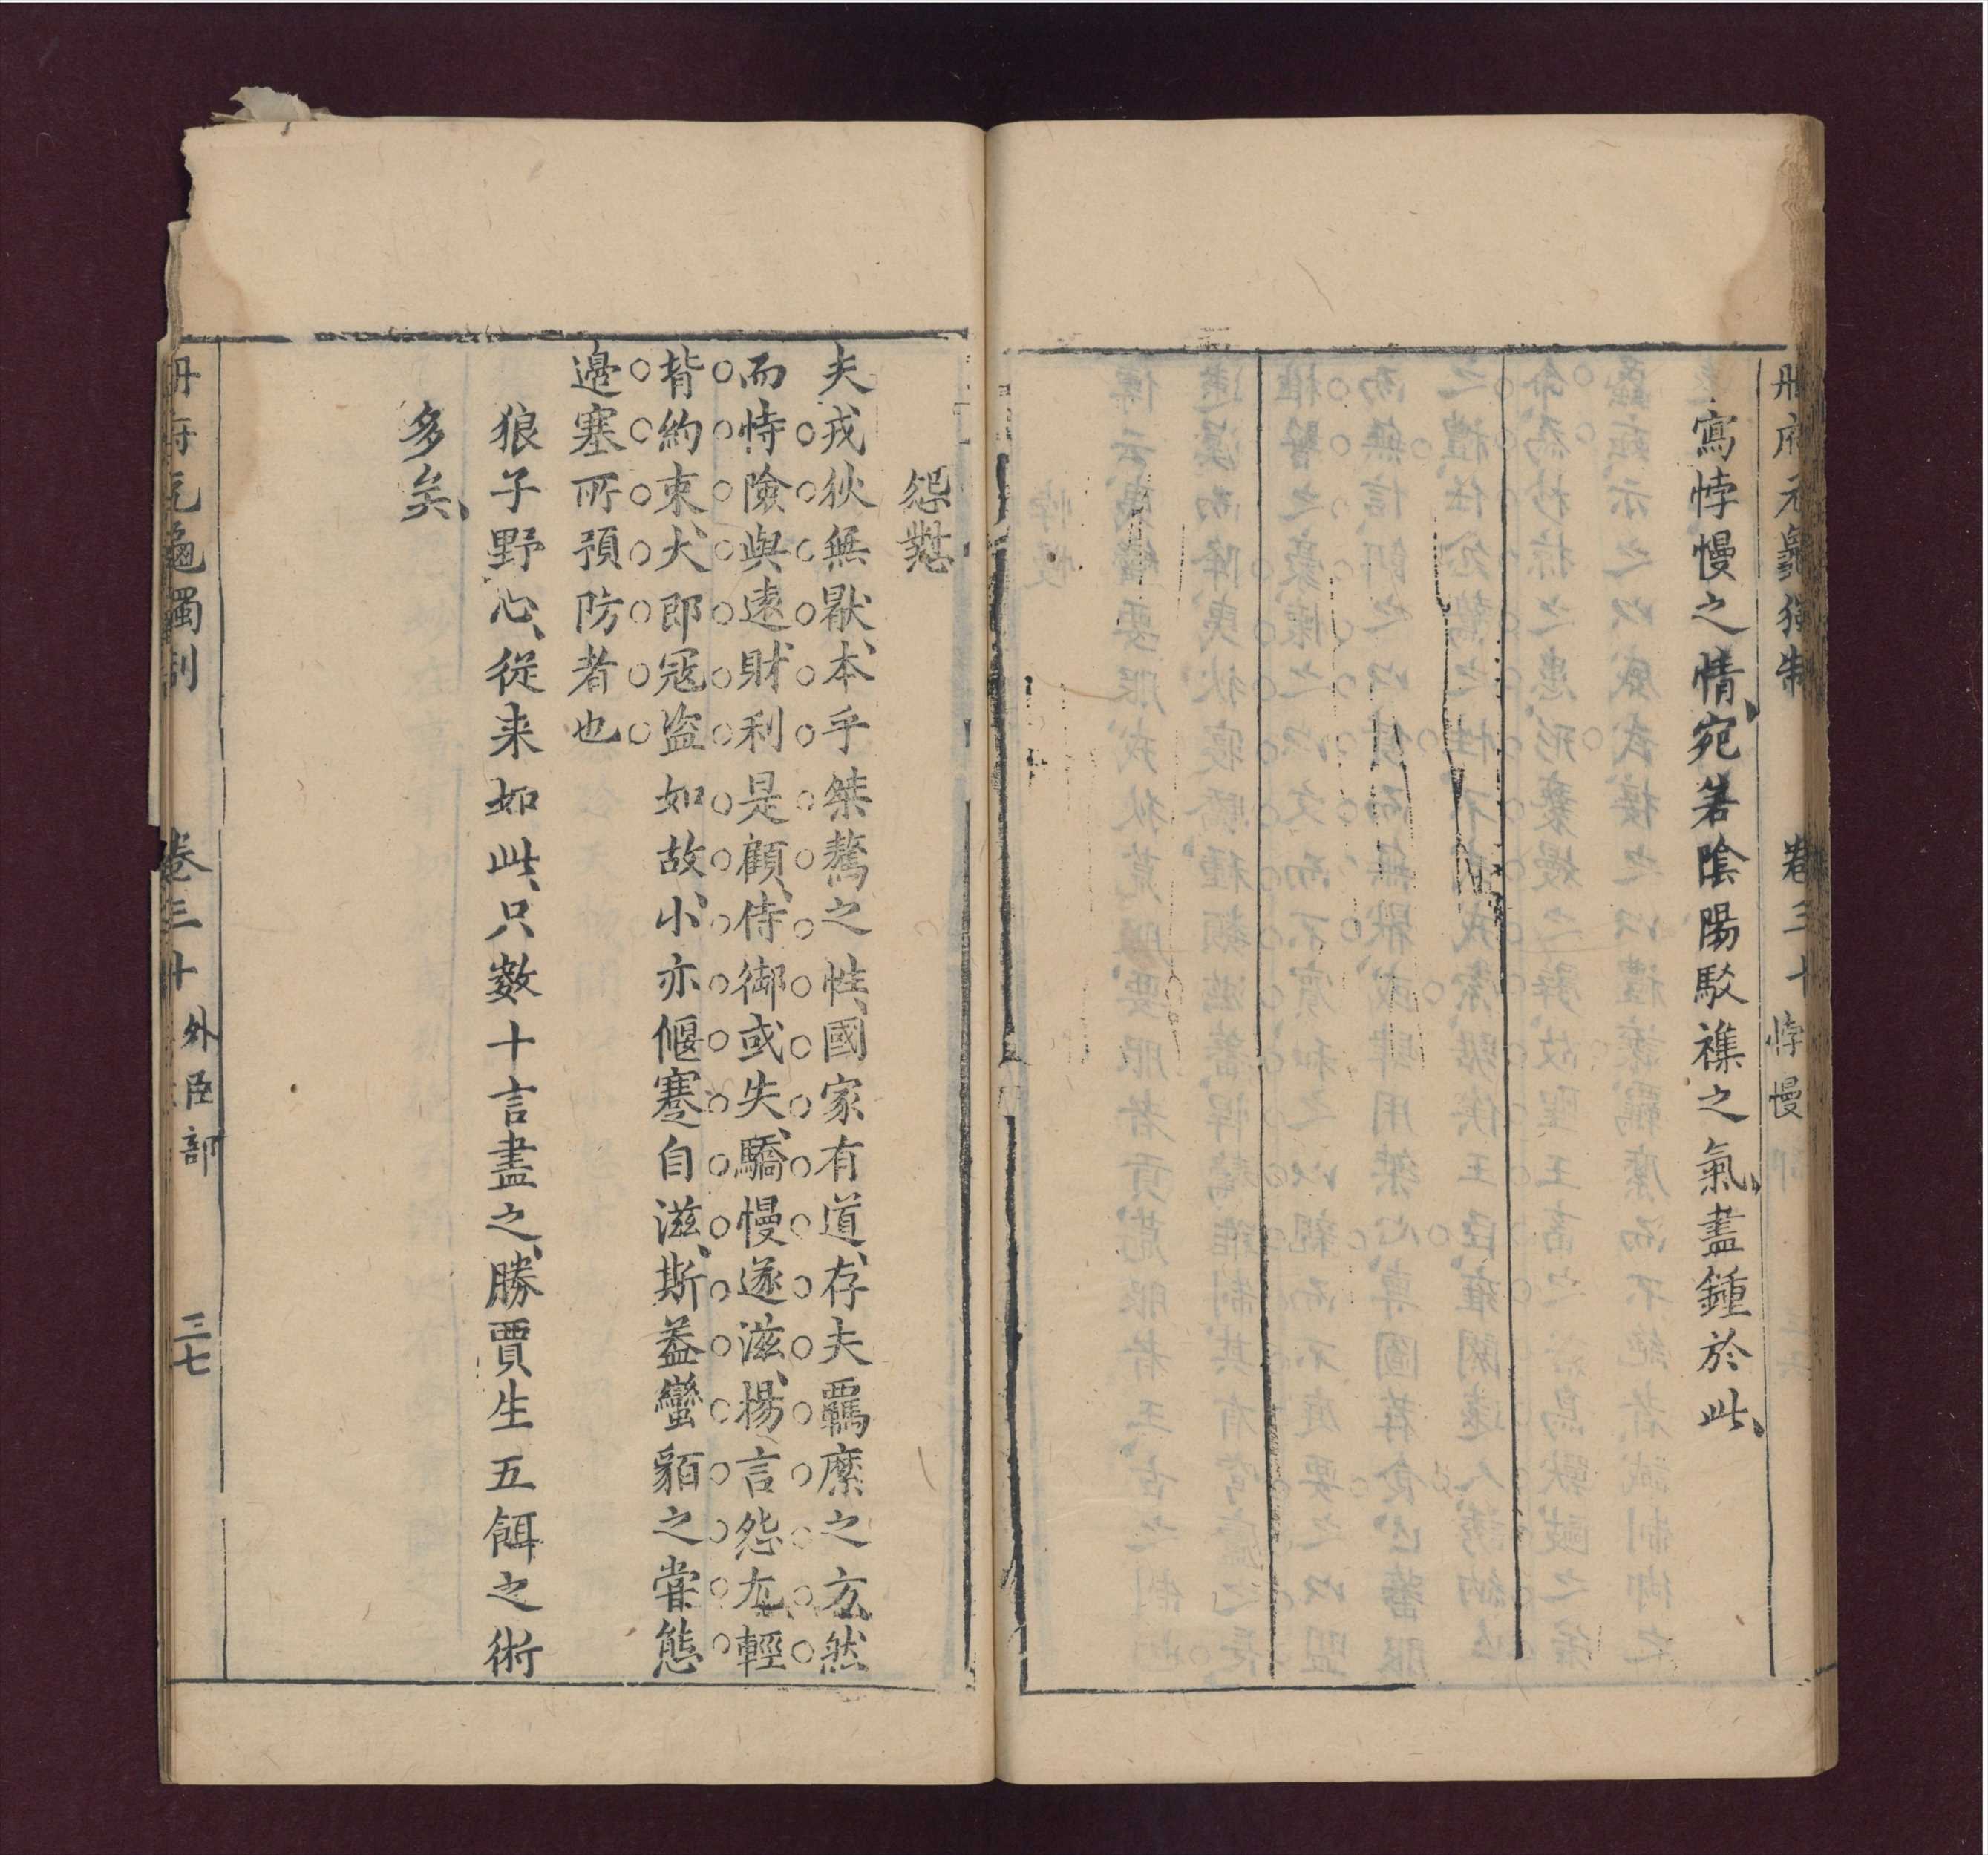 冊府元龜獨制　卷三十　悖慢
寫悖慢之情、宛若陰陽駁襍之氣、盡鍾於此、
怨懟
夫戎狄無厭、本乎桀驁之性、國家有道、存夫羈縻之方、然
而恃險與遠、財利是顧、侍御或失、驕慢遂滋、揚言怨尤、輕
背約束、犬即冦盗如故、小亦偃蹇自滋、斯葢蠻貊之甞態
邉塞所預防者也
狼子野心、從来如此、只數十言盡之、勝賈生五餌之術
多矣、
冊府元龜獨制　卷三十　外臣部　三七